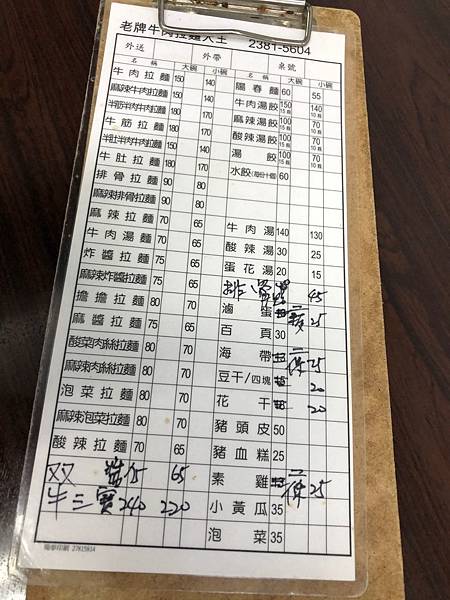 老牌牛肉拉麵大王 2381-5604
外送 外帶 桌號
名稱 大碗 小碗 名稱 大碗 小碗
牛肉拉麵 150 140 陽春麵 60 55
麻辣牛肉拉麵 150 140 牛肉湯餃 150 15顆 140 10顆
半筋半肉牛肉拉麵 180 麻辣湯餃 100 15顆 70 10顆
牛筋拉麵 180 170 酸辣湯餃 100 15顆 70 10顆
半肚半肉牛肉拉麵 150 140 湯餃 100 15顆 70 10顆
牛肚拉麵 180 170 水餃(每份十個) 60
排骨拉麵 90 80
麻辣排骨拉麵 90 80
麻辣拉麵 70 65 牛肉湯 140 130
牛肉湯麵 70 65 酸辣湯 30 25
炸醬拉麵 75 65 蛋花湯 20 15
麻辣炸醬拉麵 75 65 排骨 45
擔擔拉麵 75 65 滷蛋 25
麻醬拉麵 75 65 百頁 30
酸菜肉絲拉麵 80 70 海帶 25
麻辣肉絲拉麵 80 70 豆干/四塊 20
泡菜拉麵 80 70 花干 20
麻辣泡菜拉麵 80 70 豬頭皮 50
酸辣拉麵 70 65 豬血糕 25
双醬 75 65 素雞 25
牛三寶 240 220 小黃瓜 35
泡菜 35
27815814